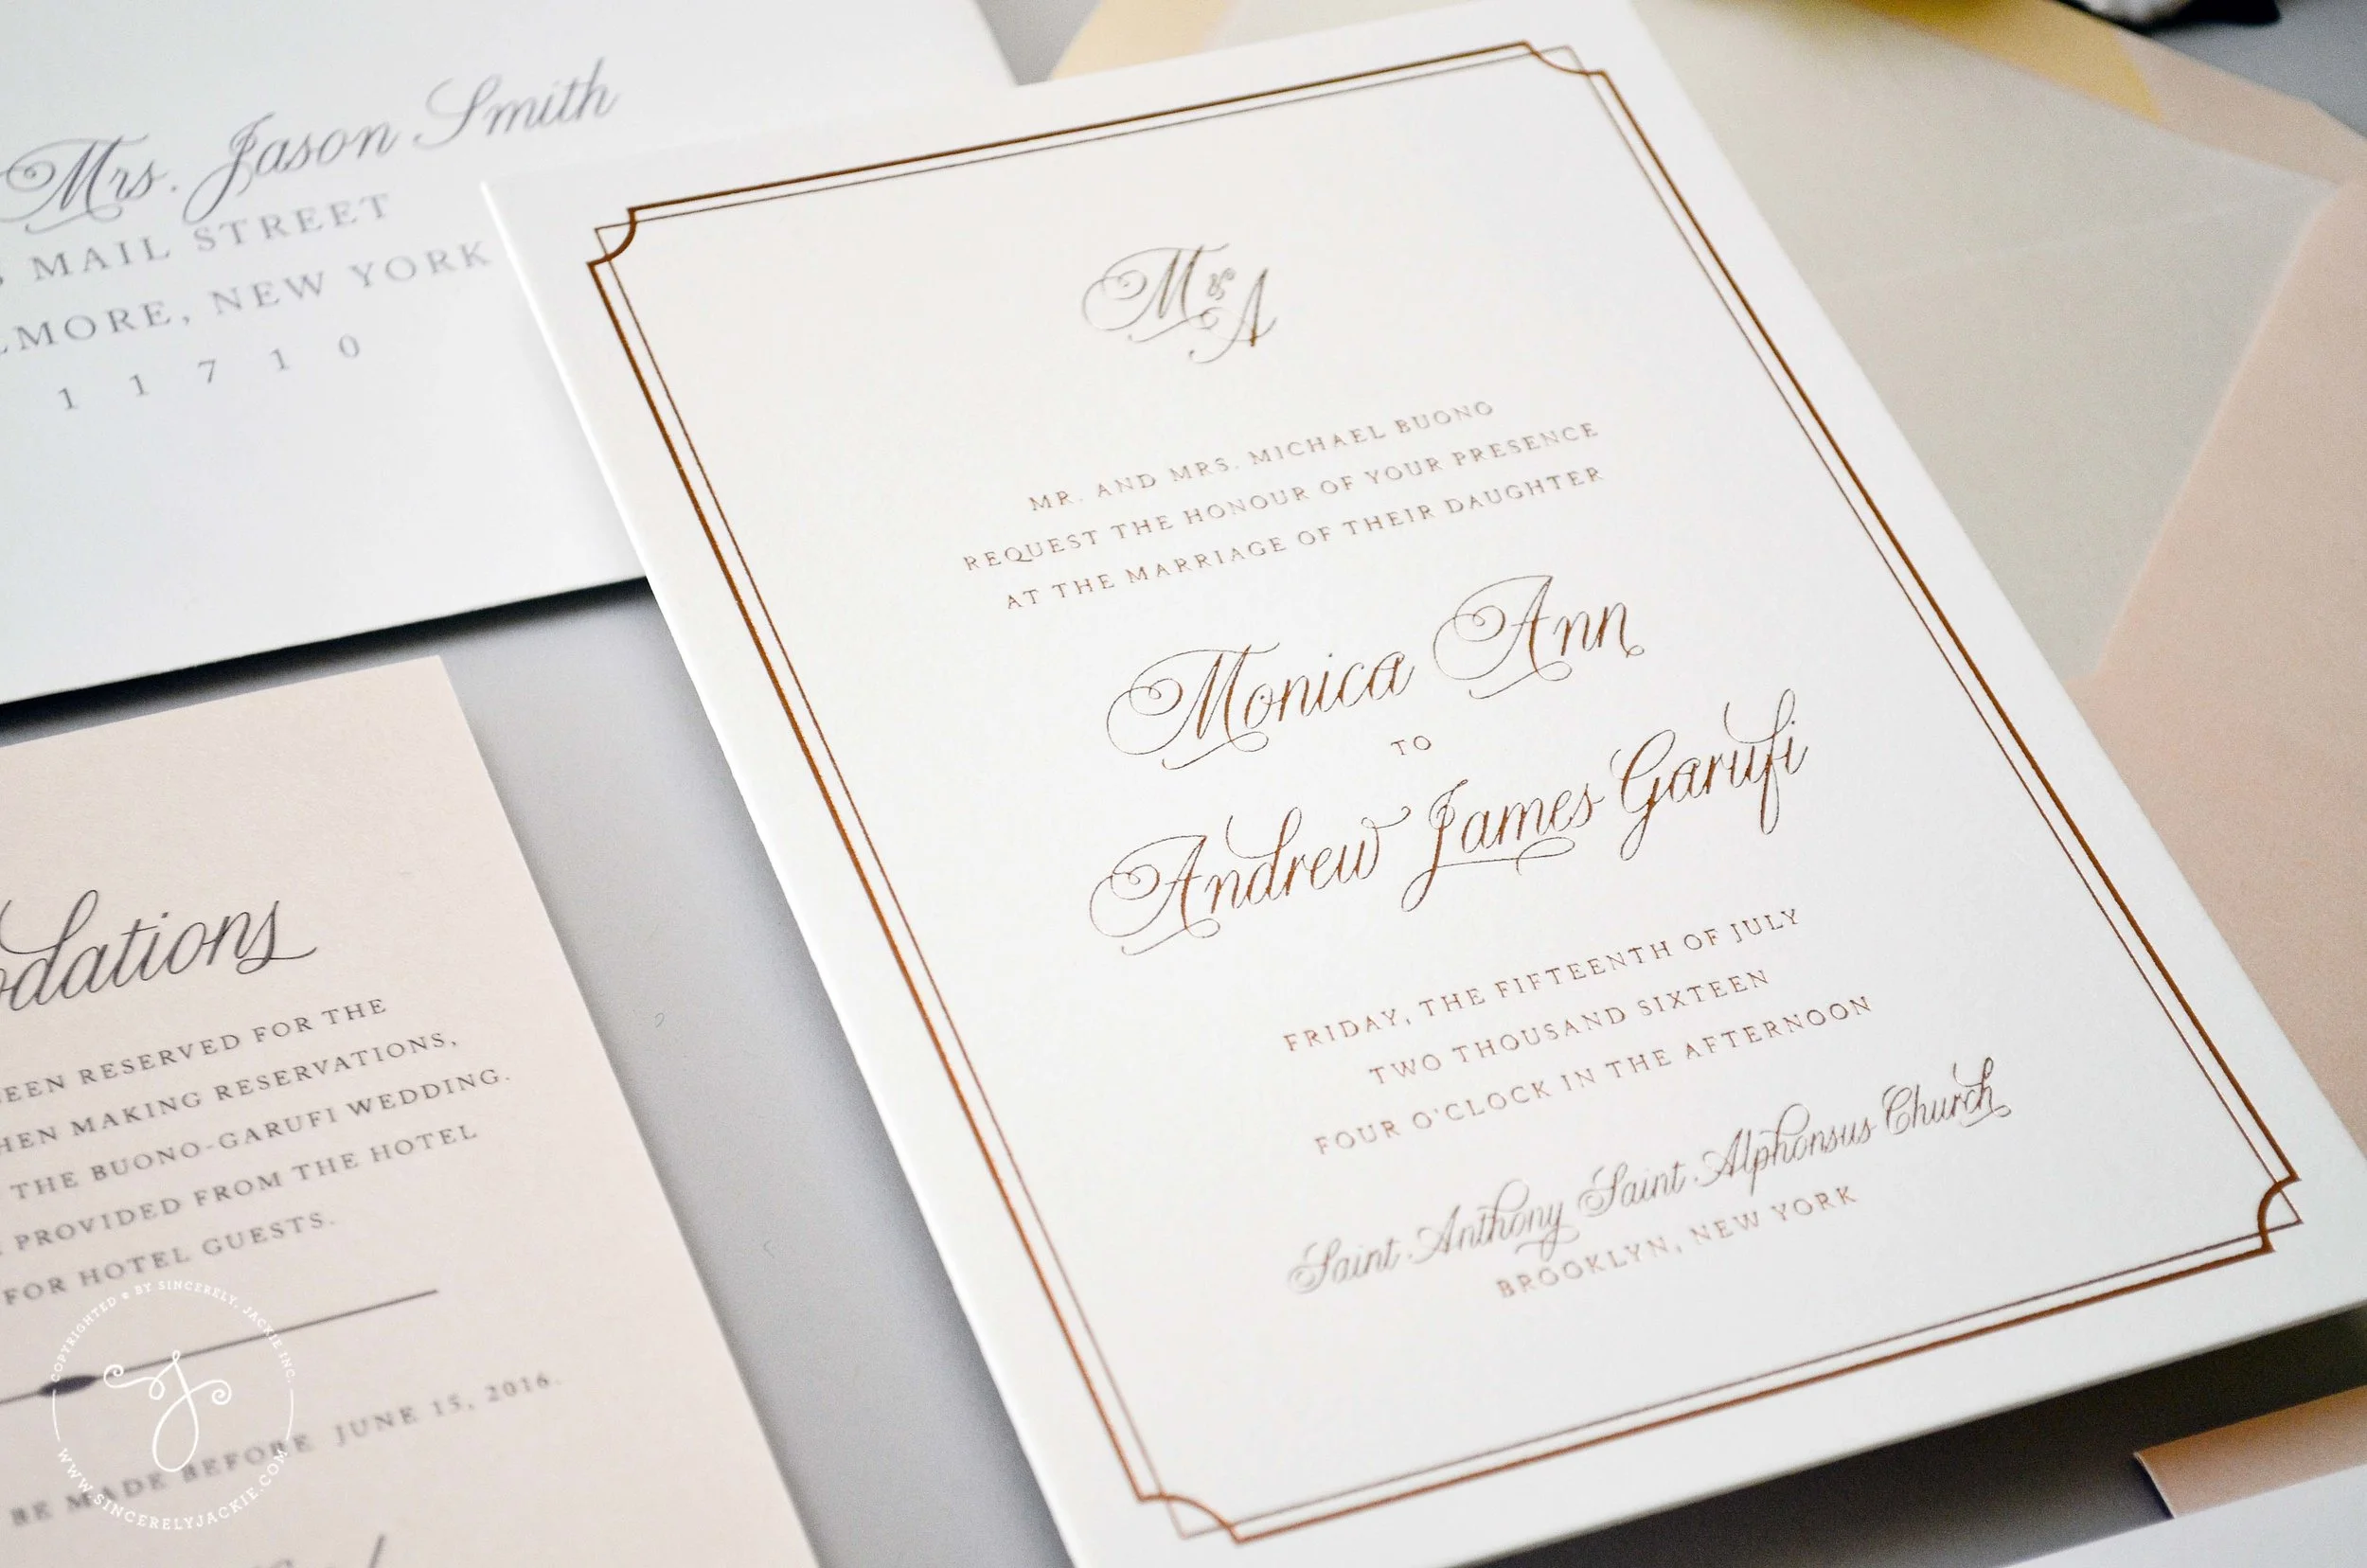 Mrs. Jason Smith
MAIL STREET
NEW YORK
1 1 7 1 0
M & A
MR. AND MRS. MICHAEL BUONO
REQUEST THE HONOUR OF YOUR PRESENCE
AT THE MARRIAGE OF THEIR DAUGHTER
Monica Ann
TO
Andrew James Garufi
FRIDAY, THE FIFTEENTH OF JULY
TWO THOUSAND SIXTEEN
FOUR O'CLOCK IN THE AFTERNOON
Saint Anthony Saint Alphonsus Church
BROOKLYN, NEW YORK
RESERVED FOR THE
MAKING RESERVATIONS,
THE BUONO-GARUFI WEDDING.
PROVIDED FROM THE HOTEL
FOR HOTEL GUESTS.
BE MADE BEFORE JUNE 15, 2016.
COPYRIGHTED © BY SINCERELY, JACKIE INC.
WWW.SINCERELYJACKIE.COM